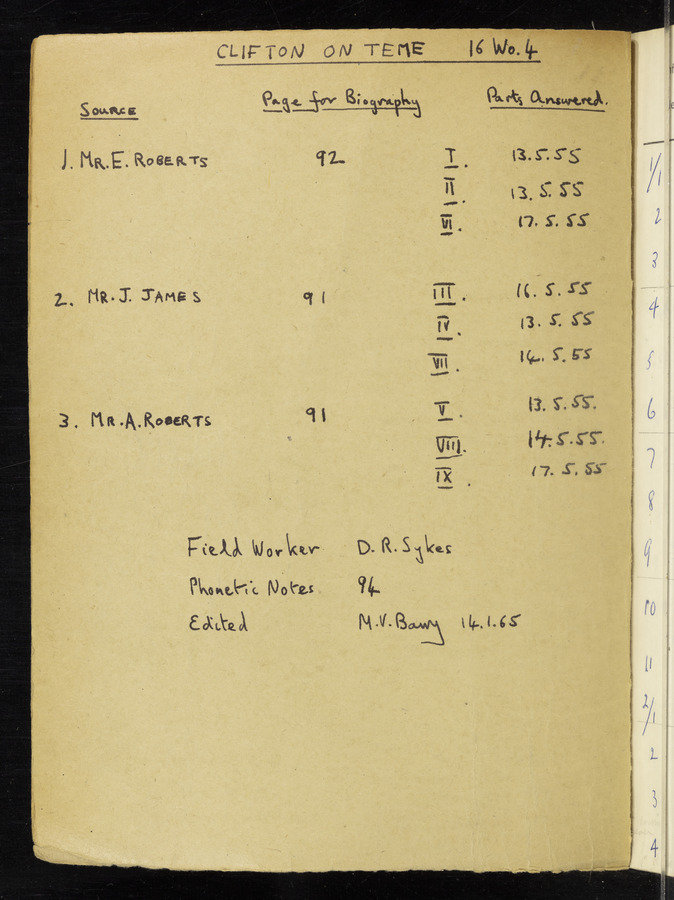 CLIFTON ON TEME 16 Wo. 4
SOURCE Page for Biography Parts Answered.
1. MR. E. ROBERTS 92 I. 13.5.55
II. 13.5.55
VI. 17.5.55
2. MR. J. JAMES 91 III. 16.5.55
IV. 13.5.55
VII. 14.5.55
3. MR. A. ROBERTS 91 V. 13.5.55.
VIII. 14.5.55.
IX. 17.5.55
Field Worker D.R. Sykes
Phonetic Notes 94
Edited M.V. Barry 14.1.65
1/1
2
3
4
5
6
7
8
9
10
11
2/1
2
3
4